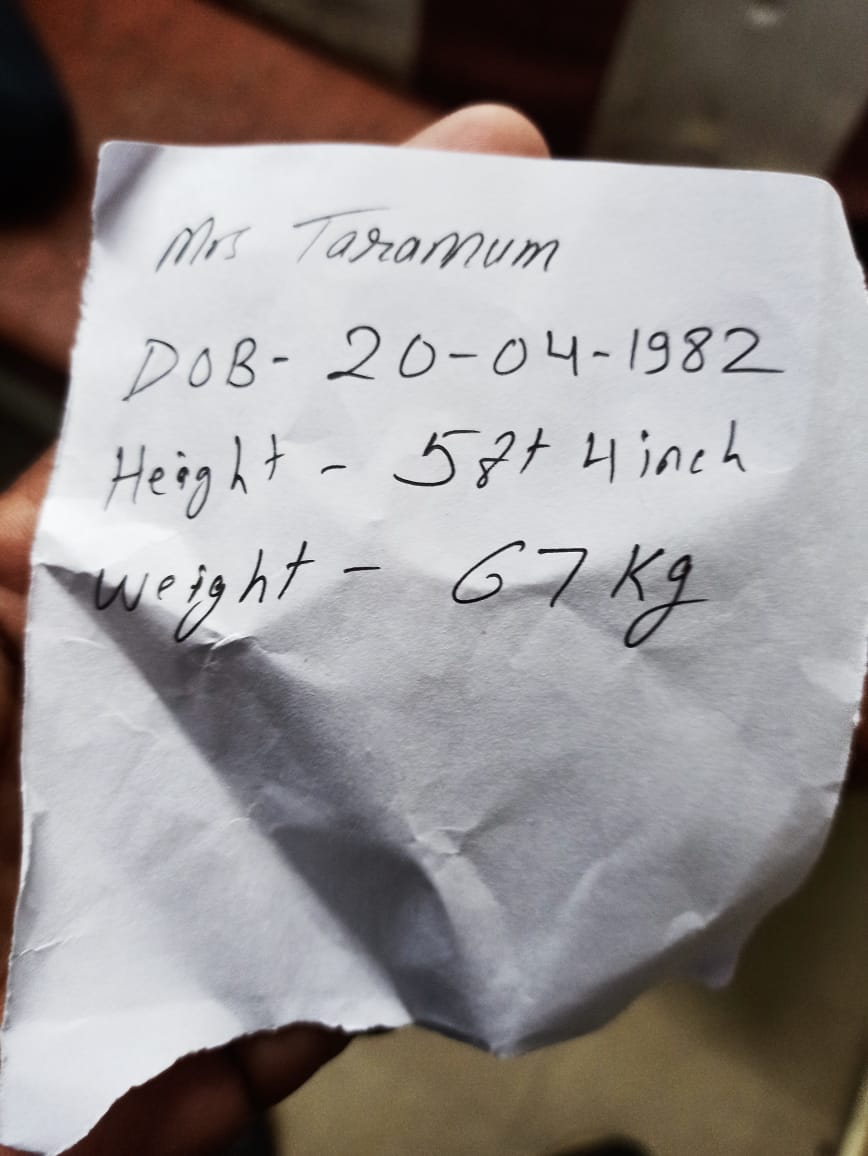 Mrs Taramum
DOB- 20-04-1982
Height - 5ft 4 inch
Weight - 67 Kg